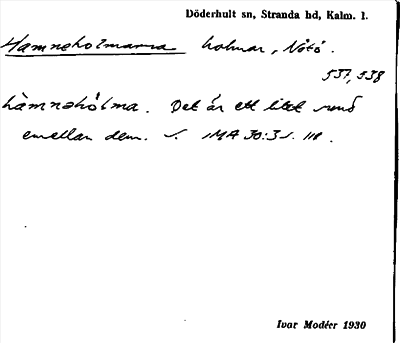 Döderhult sn, Stranda hd, Kalm. l.
Hamneholmarna holmar, Nötö.
537, 538
hàmnəhólma. Det är ett litet sund
emellan dem. s. IMA 30:3 s. 118.
Ivar Modéer 1930